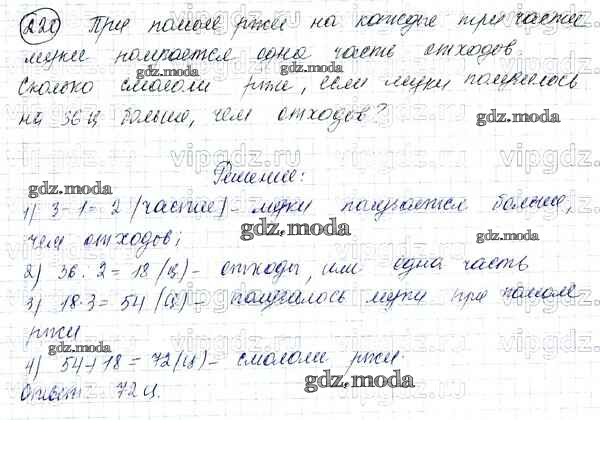 220 При помоле ржи на каждые три части
муки получается одна часть отходов.
gdz.moda
Сколько смололи ржи, если муки получилось
на 36 ц больше, чем отходов?
gdz.moda
vipgdz.ru
Решение:
gdz.moda
1) 3-1=2 (части) - муки получается больше,
чем отходов;
gdz.moda
2) 36:2=18 (ц) - отходы, или одна часть
3) 18·3=54 (ц) - получилось муки при помоле
ржи
gdz.moda
4) 54+18=72 (ц) - смололи ржи.
gdz.moda
Ответ 72 ц.